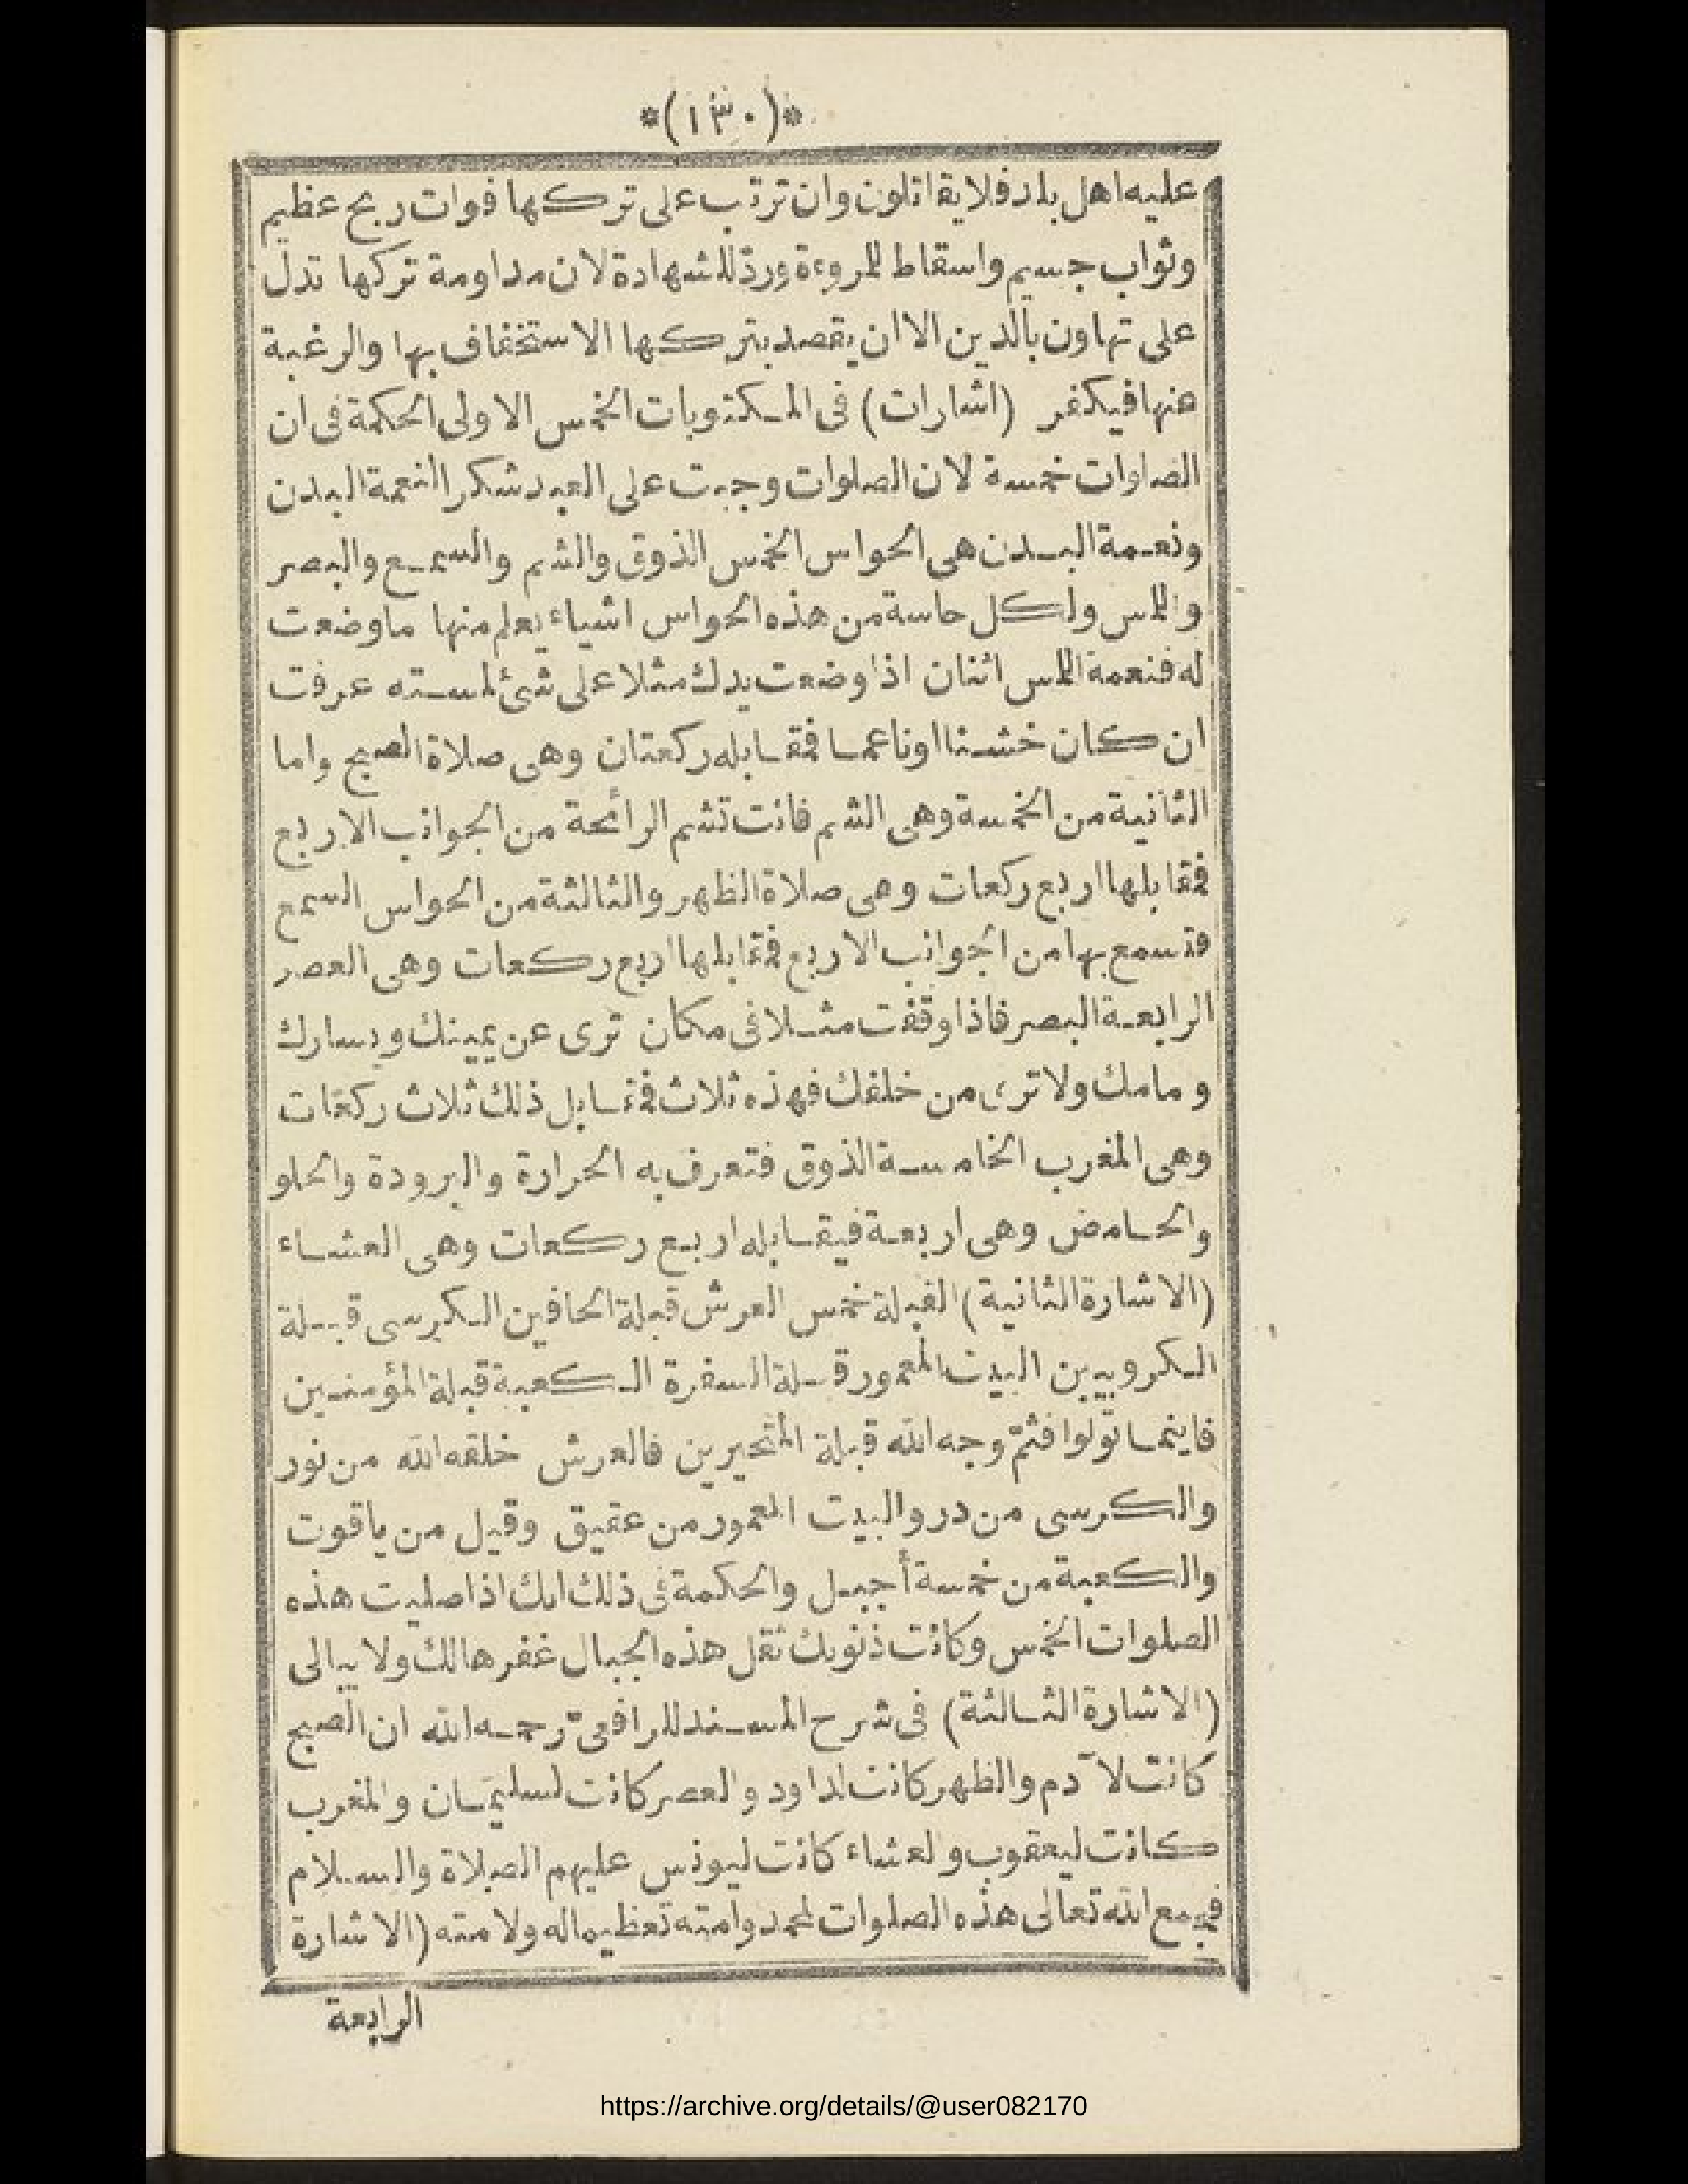 *(١٣٠)*
عليه اهل بلد فلا يقاتلون وان ترتب على تركها فوات ربح عظيم
وثواب جسيم واسقاط للمروءة وردّ للشهادة لان مداومة تركها تدل
على تهاون بالدين الا ان يقصد بتركها الاستخفاف بها والرغبة
عنها فيكفر (اشارات) فى المكتوبات الخمس الاولى الحكمة فى ان
الصلوات خمسة لان الصلوات وجبت على العبد شكرا لنعمة البدن
ونعمة البدن هى الحواس الخمس الذوق والشم والسمع والبصر
واللمس ولكل حاسة من هذه الحواس اشياء يعلم منها ماوضعت
له فنعمة اللمس اثنان اذا وضعت يدك مثلا على شئ لمسته عرفت
ان كان خشنا اوناعما فقابله ركعتان وهى صلاة الصبح واما
الثانية من الخمسة وهى الشم فانت تشم الرائحة من الجوانب الاربع
فقابلها اربع ركعات وهى صلاة الظهر والثالثة من الحواس السمع
فتسمع بها من الجوانب الاربع فقابلها اربع ركعات وهى العصر
الرابعة البصر فاذا وقفت مثلا فى مكان ترى عن يمينك ويسارك
و مامك ولا ترى من خلفك فهذه ثلاث فقابل ذلك ثلاث ركعات
وهى المغرب الخامسة الذوق فتعرف به الحرارة والبرودة والحلو
والحامض وهى اربعة فيقابله اربع ركعات وهى العشاء
(الاشارة الثانية) القبلة خمس العرش قبلة الحافين الكرسى قبلة
الكروبيين البيت المعمور قبلة السفرة الكعبة قبلة المؤمنين
فاينما تولوا فثمّ وجه الله قبلة المتحيرين فالعرش خلقه الله من نور
والكرسى من در والبيت المعمور من عقيق وقيل من ياقوت
والكعبة من خمسة أجبل والحكمة فى ذلك انك اذا صليت هذه
الصلوات الخمس وكانت ذنوبك ثقل هذه الجبال غفرها لك ولا يبالى
(الاشارة الثالثة) فى شرح المسند للرافعىّ رحمه الله ان الصبح
كانت لآدم والظهر كانت لداود والعصر كانت لسليمان والمغرب
كانت ليعقوب و لعشاء كانت ليونس عليهم الصلاة والسلام
فجمع الله تعالى هذه الصلوات لمحمد وامته تعظيما له ولامته (الاشارة
الرابعة
https://archive.org/details/@user082170